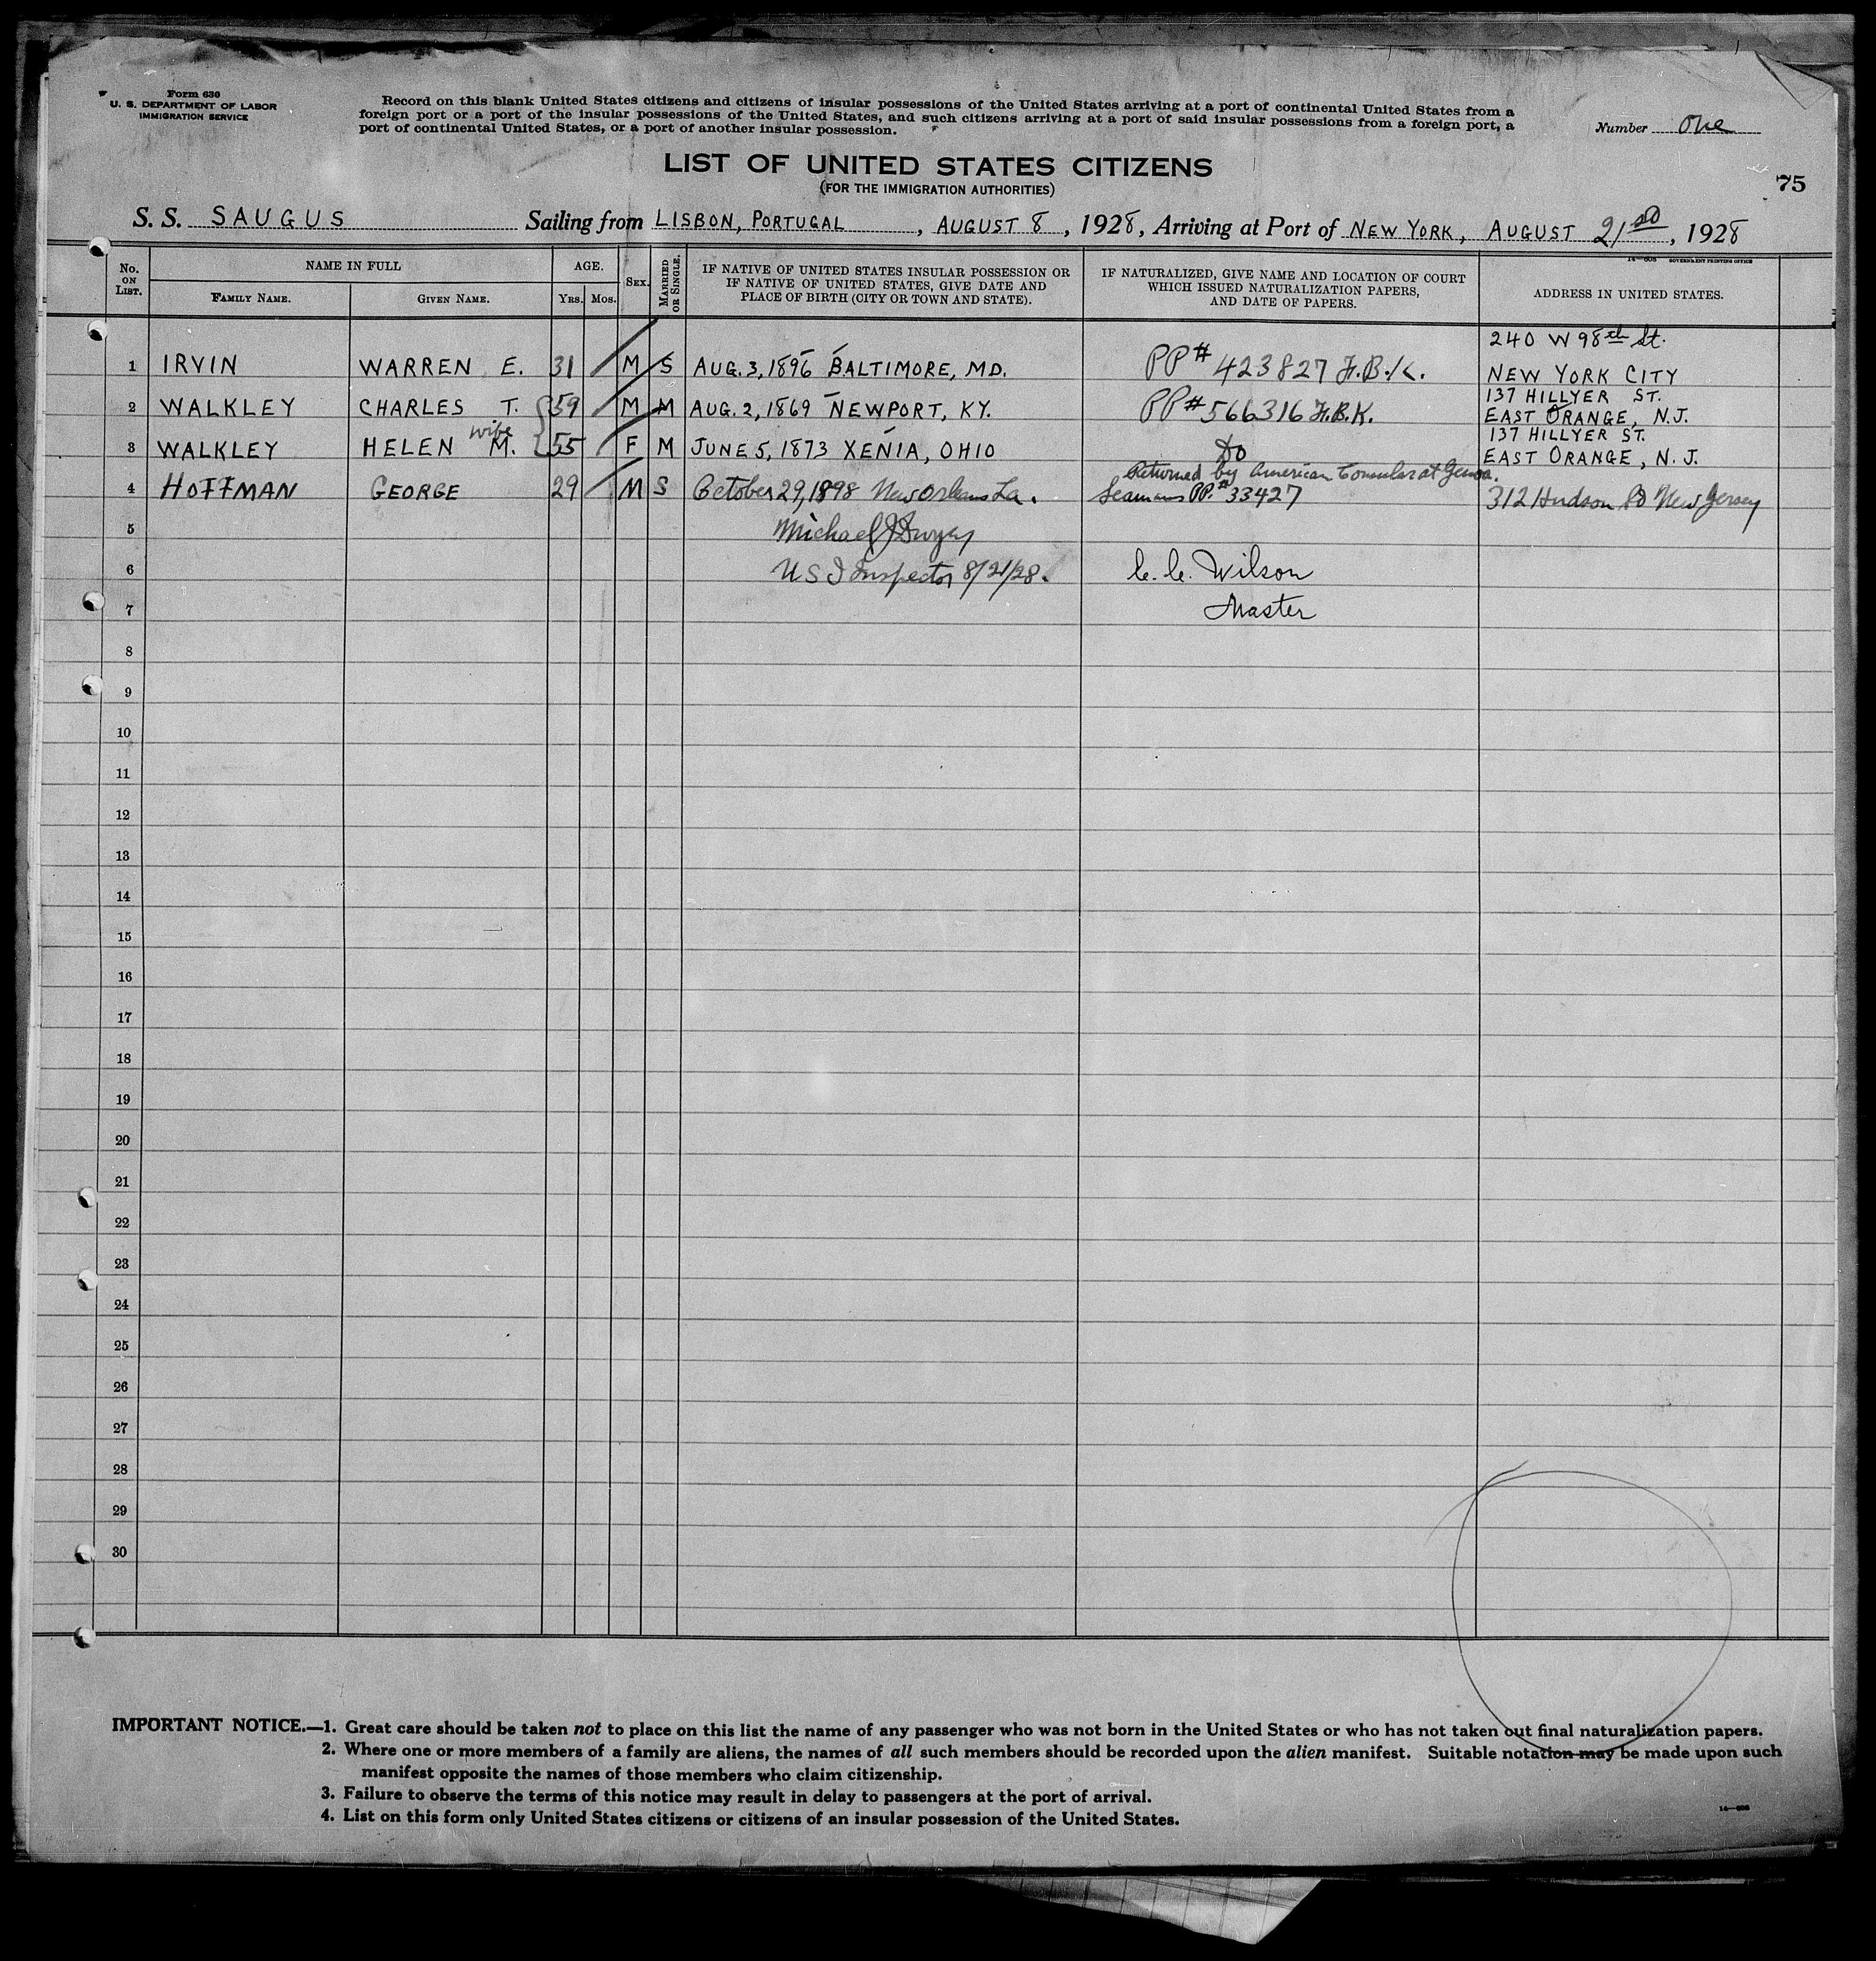 Form 630
U. S. DEPARTMENT OF LABOR
IMMIGRATION SERVICE
Record on this blank United States citizens and citizens of insular possessions of the United States arriving at a port of continental United States from a
foreign port or a port of the insular possessions of the United States, and such citizens arriving at a port of said insular possessions from a foreign port, a
port of continental United States, or a port of another insular possession.
Number One
LIST OF UNITED STATES CITIZENS
(FOR THE IMMIGRATION AUTHORITIES)
75
S. S. SAUGUS Sailing from LISBON, PORTUGAL, AUGUST 8, 1928, Arriving at Port of NEW YORK, AUGUST 21, 1928
GOVERNMENT PRINTING OFFICE
No. ON LIST.
NAME IN FULL
FAMILY NAME.
GIVEN NAME.
AGE.
Yrs. Mos.
SEX.
MARRIED OR SINGLE.
IF NATIVE OF UNITED STATES INSULAR POSSESSION OR
IF NATIVE OF UNITED STATES, GIVE DATE AND
PLACE OF BIRTH (CITY OR TOWN AND STATE).
IF NATURALIZED, GIVE NAME AND LOCATION OF COURT
WHICH ISSUED NATURALIZATION PAPERS,
AND DATE OF PAPERS.
ADDRESS IN UNITED STATES.
240 W 98th St.
1 IRVIN WARREN E. 31 M S AUG. 3, 1896 BALTIMORE, MD. PP# 423827 F.B.K. NEW YORK CITY
137 HILLYER ST.
2 WALKLEY CHARLES T. 59 M M AUG. 2, 1869 NEWPORT, KY. PP# 566316 F.B.K. EAST ORANGE, N.J.
wife
137 HILLYER ST.
3 WALKLEY HELEN M. 55 F M JUNE 5, 1873 XENIA, OHIO Do EAST ORANGE, N.J.
Returned by American Consular at Genoa.
4 HOFFMAN GEORGE 29 M S October 29, 1898 New Orleans La. Seamans PP.# 33427 312 Hudson St New Jersey
5 Michael J Dwyer
6 U S I Inspector 8/21/28. C. C. Wilson
7 Master
8
9
10
11
12
13
14
15
16
17
18
19
20
21
22
23
24
25
26
27
28
29
30
IMPORTANT NOTICE.—1. Great care should be taken not to place on this list the name of any passenger who was not born in the United States or who has not taken out final naturalization papers.
2. Where one or more members of a family are aliens, the names of all such members should be recorded upon the alien manifest. Suitable notation may be made upon such
manifest opposite the names of those members who claim citizenship.
3. Failure to observe the terms of this notice may result in delay to passengers at the port of arrival.
4. List on this form only United States citizens or citizens of an insular possession of the United States.